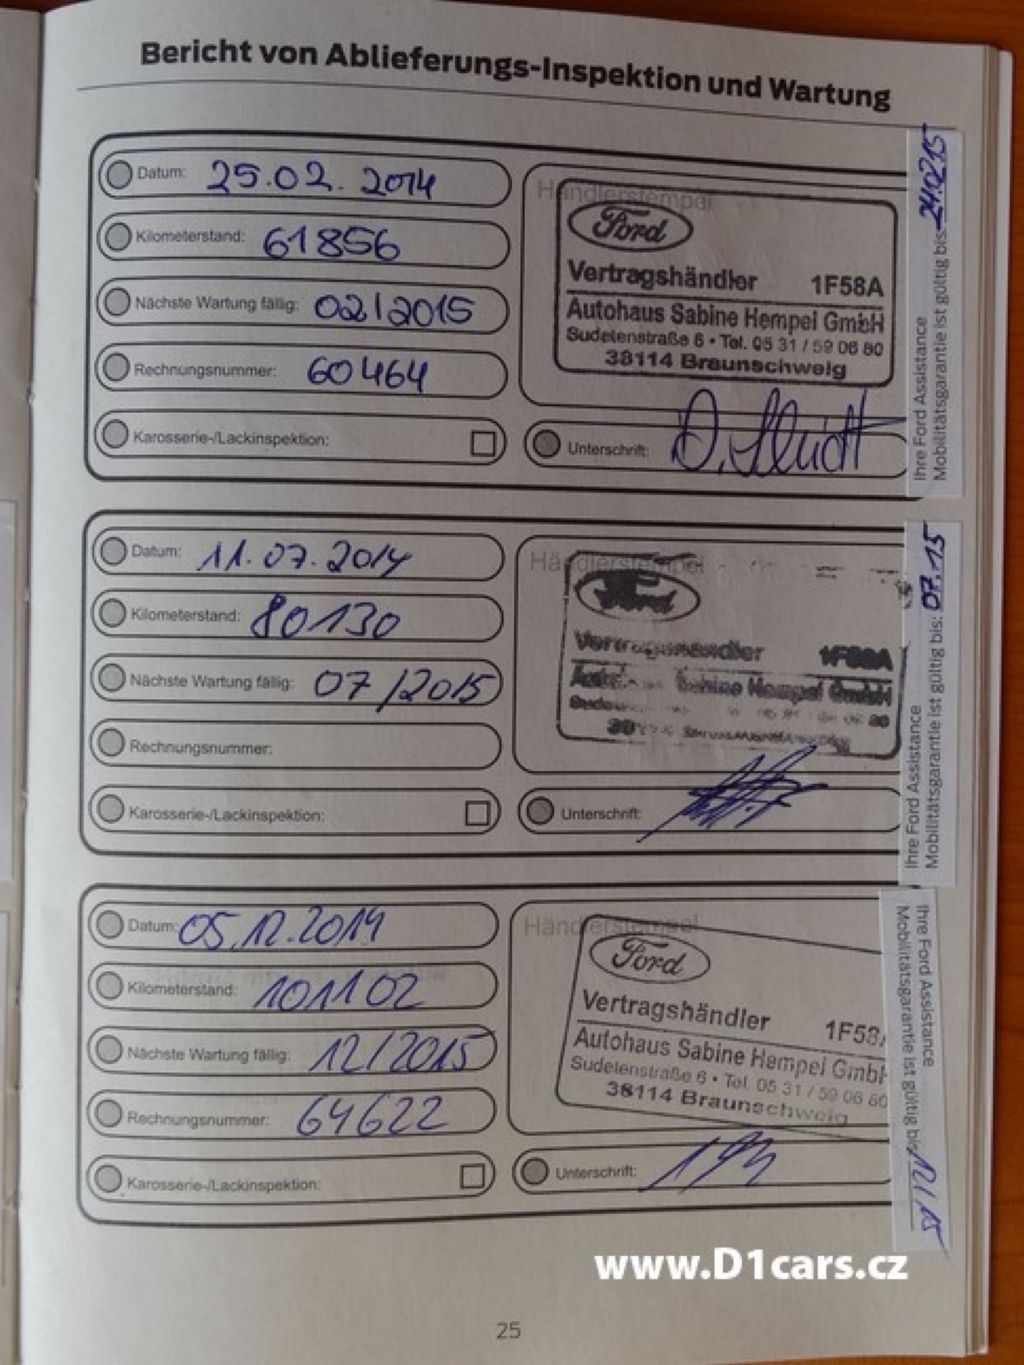 Bericht von Ablieferungs-Inspektion und Wartung
Datum: 25.02.2014
Kilometerstand: 61856
Nächste Wartung fällig: 02/2015
Rechnungsnummer: 60464
Karosserie-/Lackinspektion:
Händlerstempel
Ford
Vertragshändler 1F58A
Autohaus Sabine Hempel GmbH
Sudetenstraße 6 • Tel. 05 31 / 59 06 80
38114 Braunschweig
Unterschrift:
Ihre Ford Assistance
Mobilitätsgarantie ist gültig bis: 24.02.15
Datum: 11.07.2014
Kilometerstand: 80130
Nächste Wartung fällig: 07/2015
Rechnungsnummer:
Karosserie-/Lackinspektion:
Händlerstempel
Ford
Vertragshändler 1F58A
Sabine Hempel GmbH
Unterschrift:
Ihre Ford Assistance
Mobilitätsgarantie ist gültig bis: 07.15
Datum: 05.12.2014
Kilometerstand: 101102
Nächste Wartung fällig: 12/2015
Rechnungsnummer: 64622
Karosserie-/Lackinspektion:
Händlerstempel
Ford
Vertragshändler 1F58
Autohaus Sabine Hempel Gmb
Sudetenstraße 6 • Tel. 05 31 / 59 06 80
38114 Braunschweig
Unterschrift:
Ihre Ford Assistance
Mobilitätsgarantie ist gültig bis: 12/15
www.D1cars.cz
25